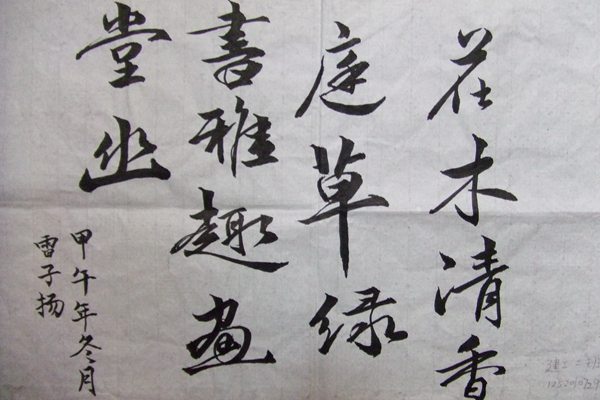 花木清香
庭草绿
書雅趣畫
堂幽
甲午年冬月
雷子扬